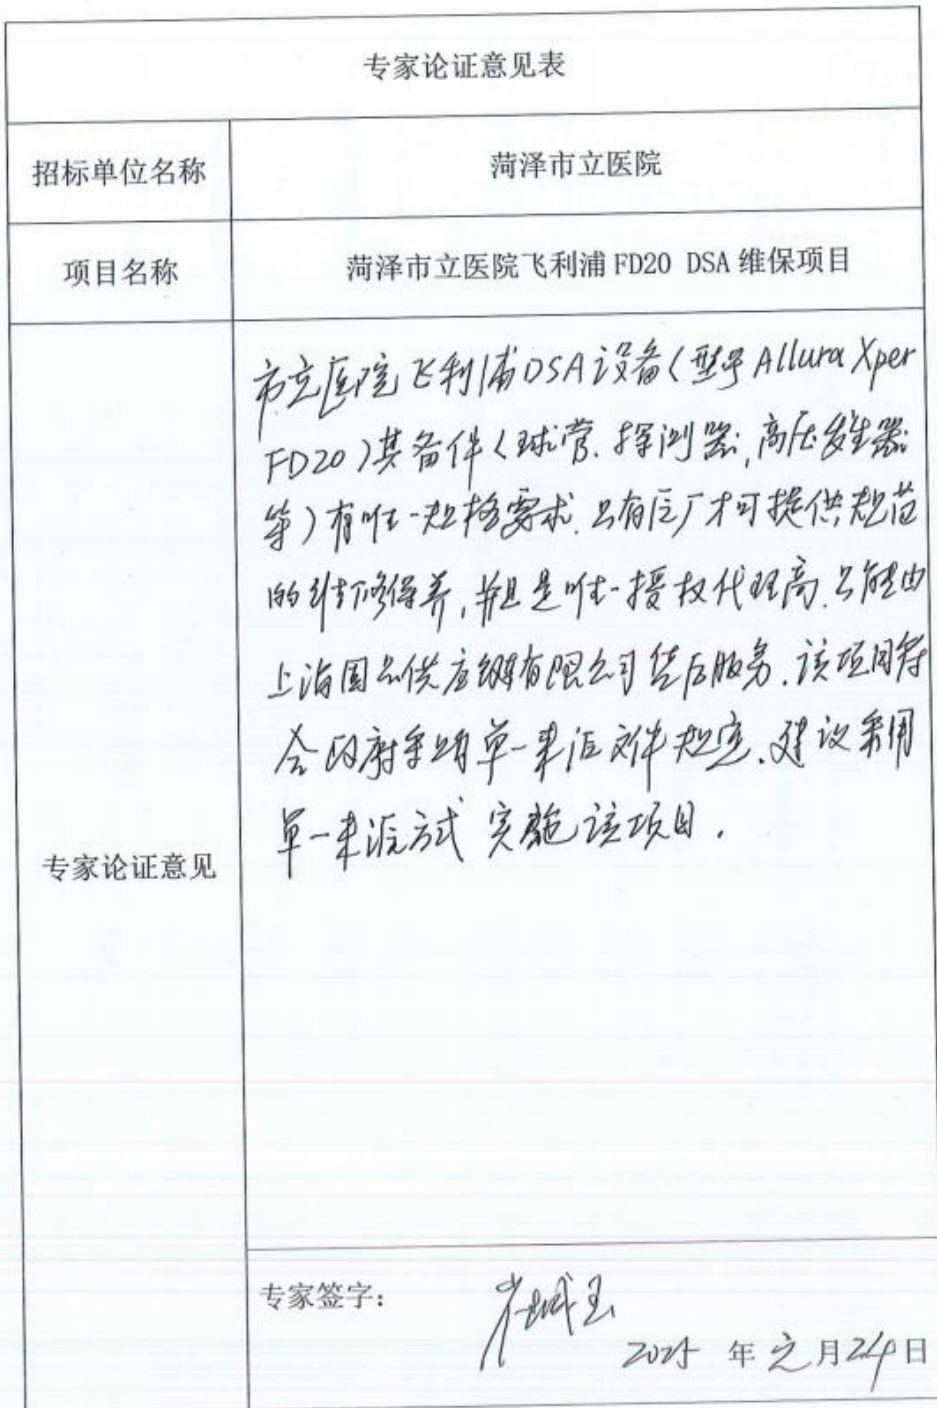 专家论证意见表
招标单位名称
菏泽市立医院
项目名称
菏泽市立医院飞利浦 FD20 DSA 维保项目
专家论证意见
市立医院飞利浦DSA设备(型号Allura Xper
FD20)其备件(球管.探测器,高压发生器
等)有唯一规格要求.只有原厂才可提供规范
的维修保养,并且是唯一授权代理商.只能由
上海国药供应链有限公司售后服务.该项目符
合政府采购单一来源文件规定.建议采用
单一来源方式实施该项目.
专家签字:
2025 年 元 月 24 日